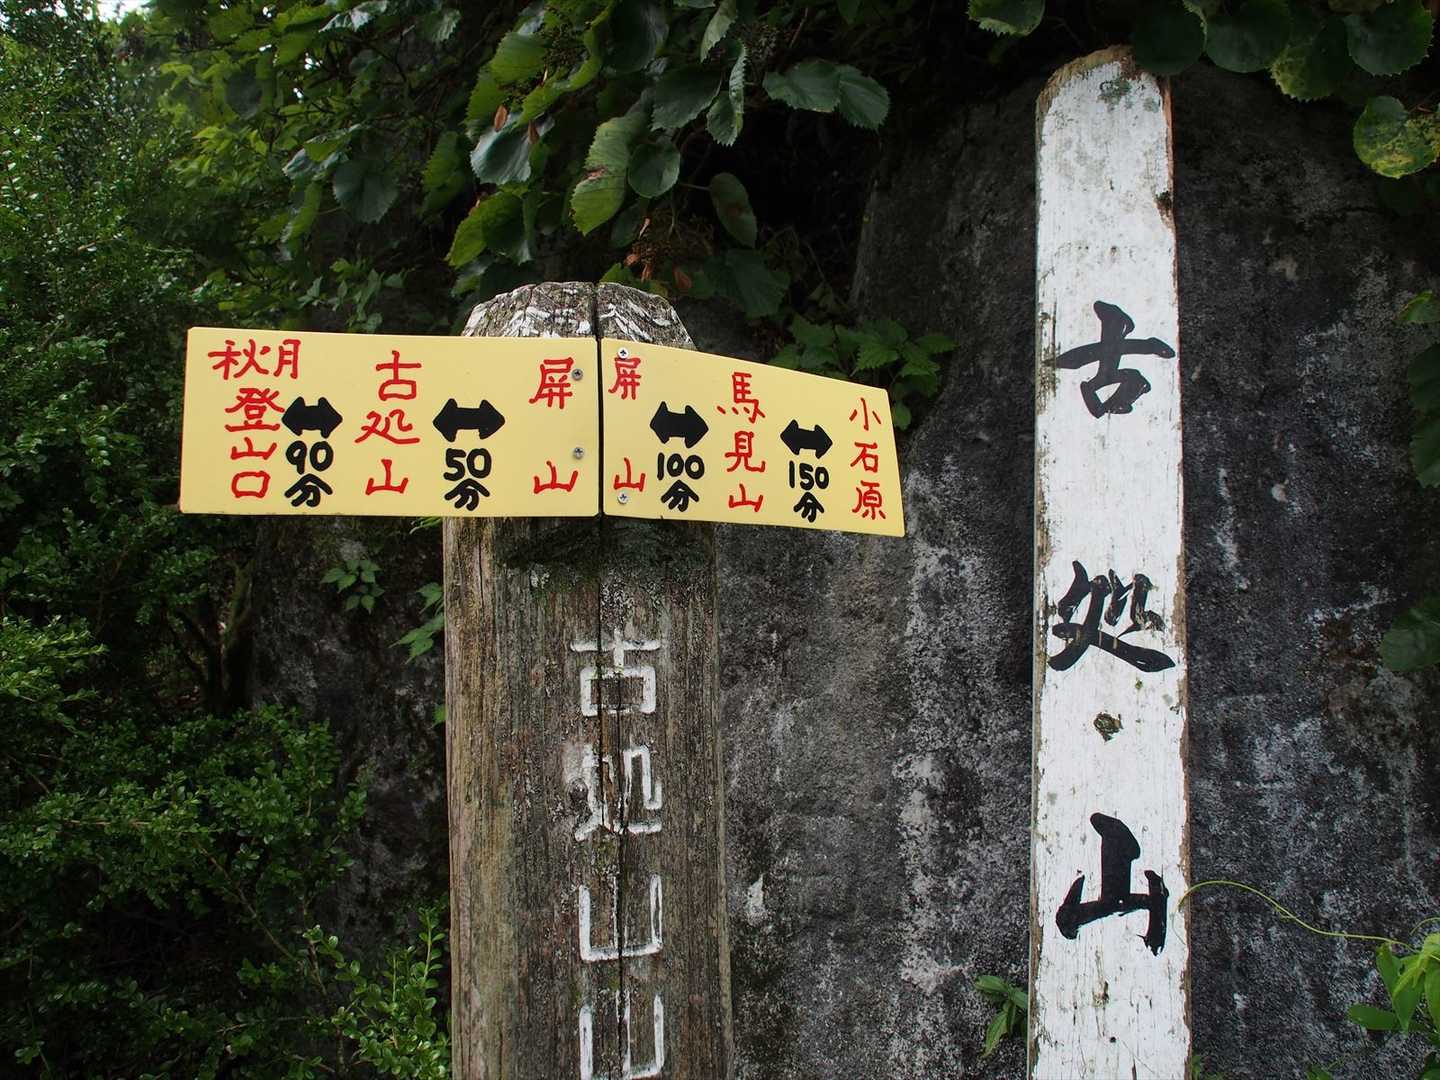 秋月
登山口
90分
古処山
50分
屏山
屏山
100分
馬見山
150分
小石原
古処山
古処山